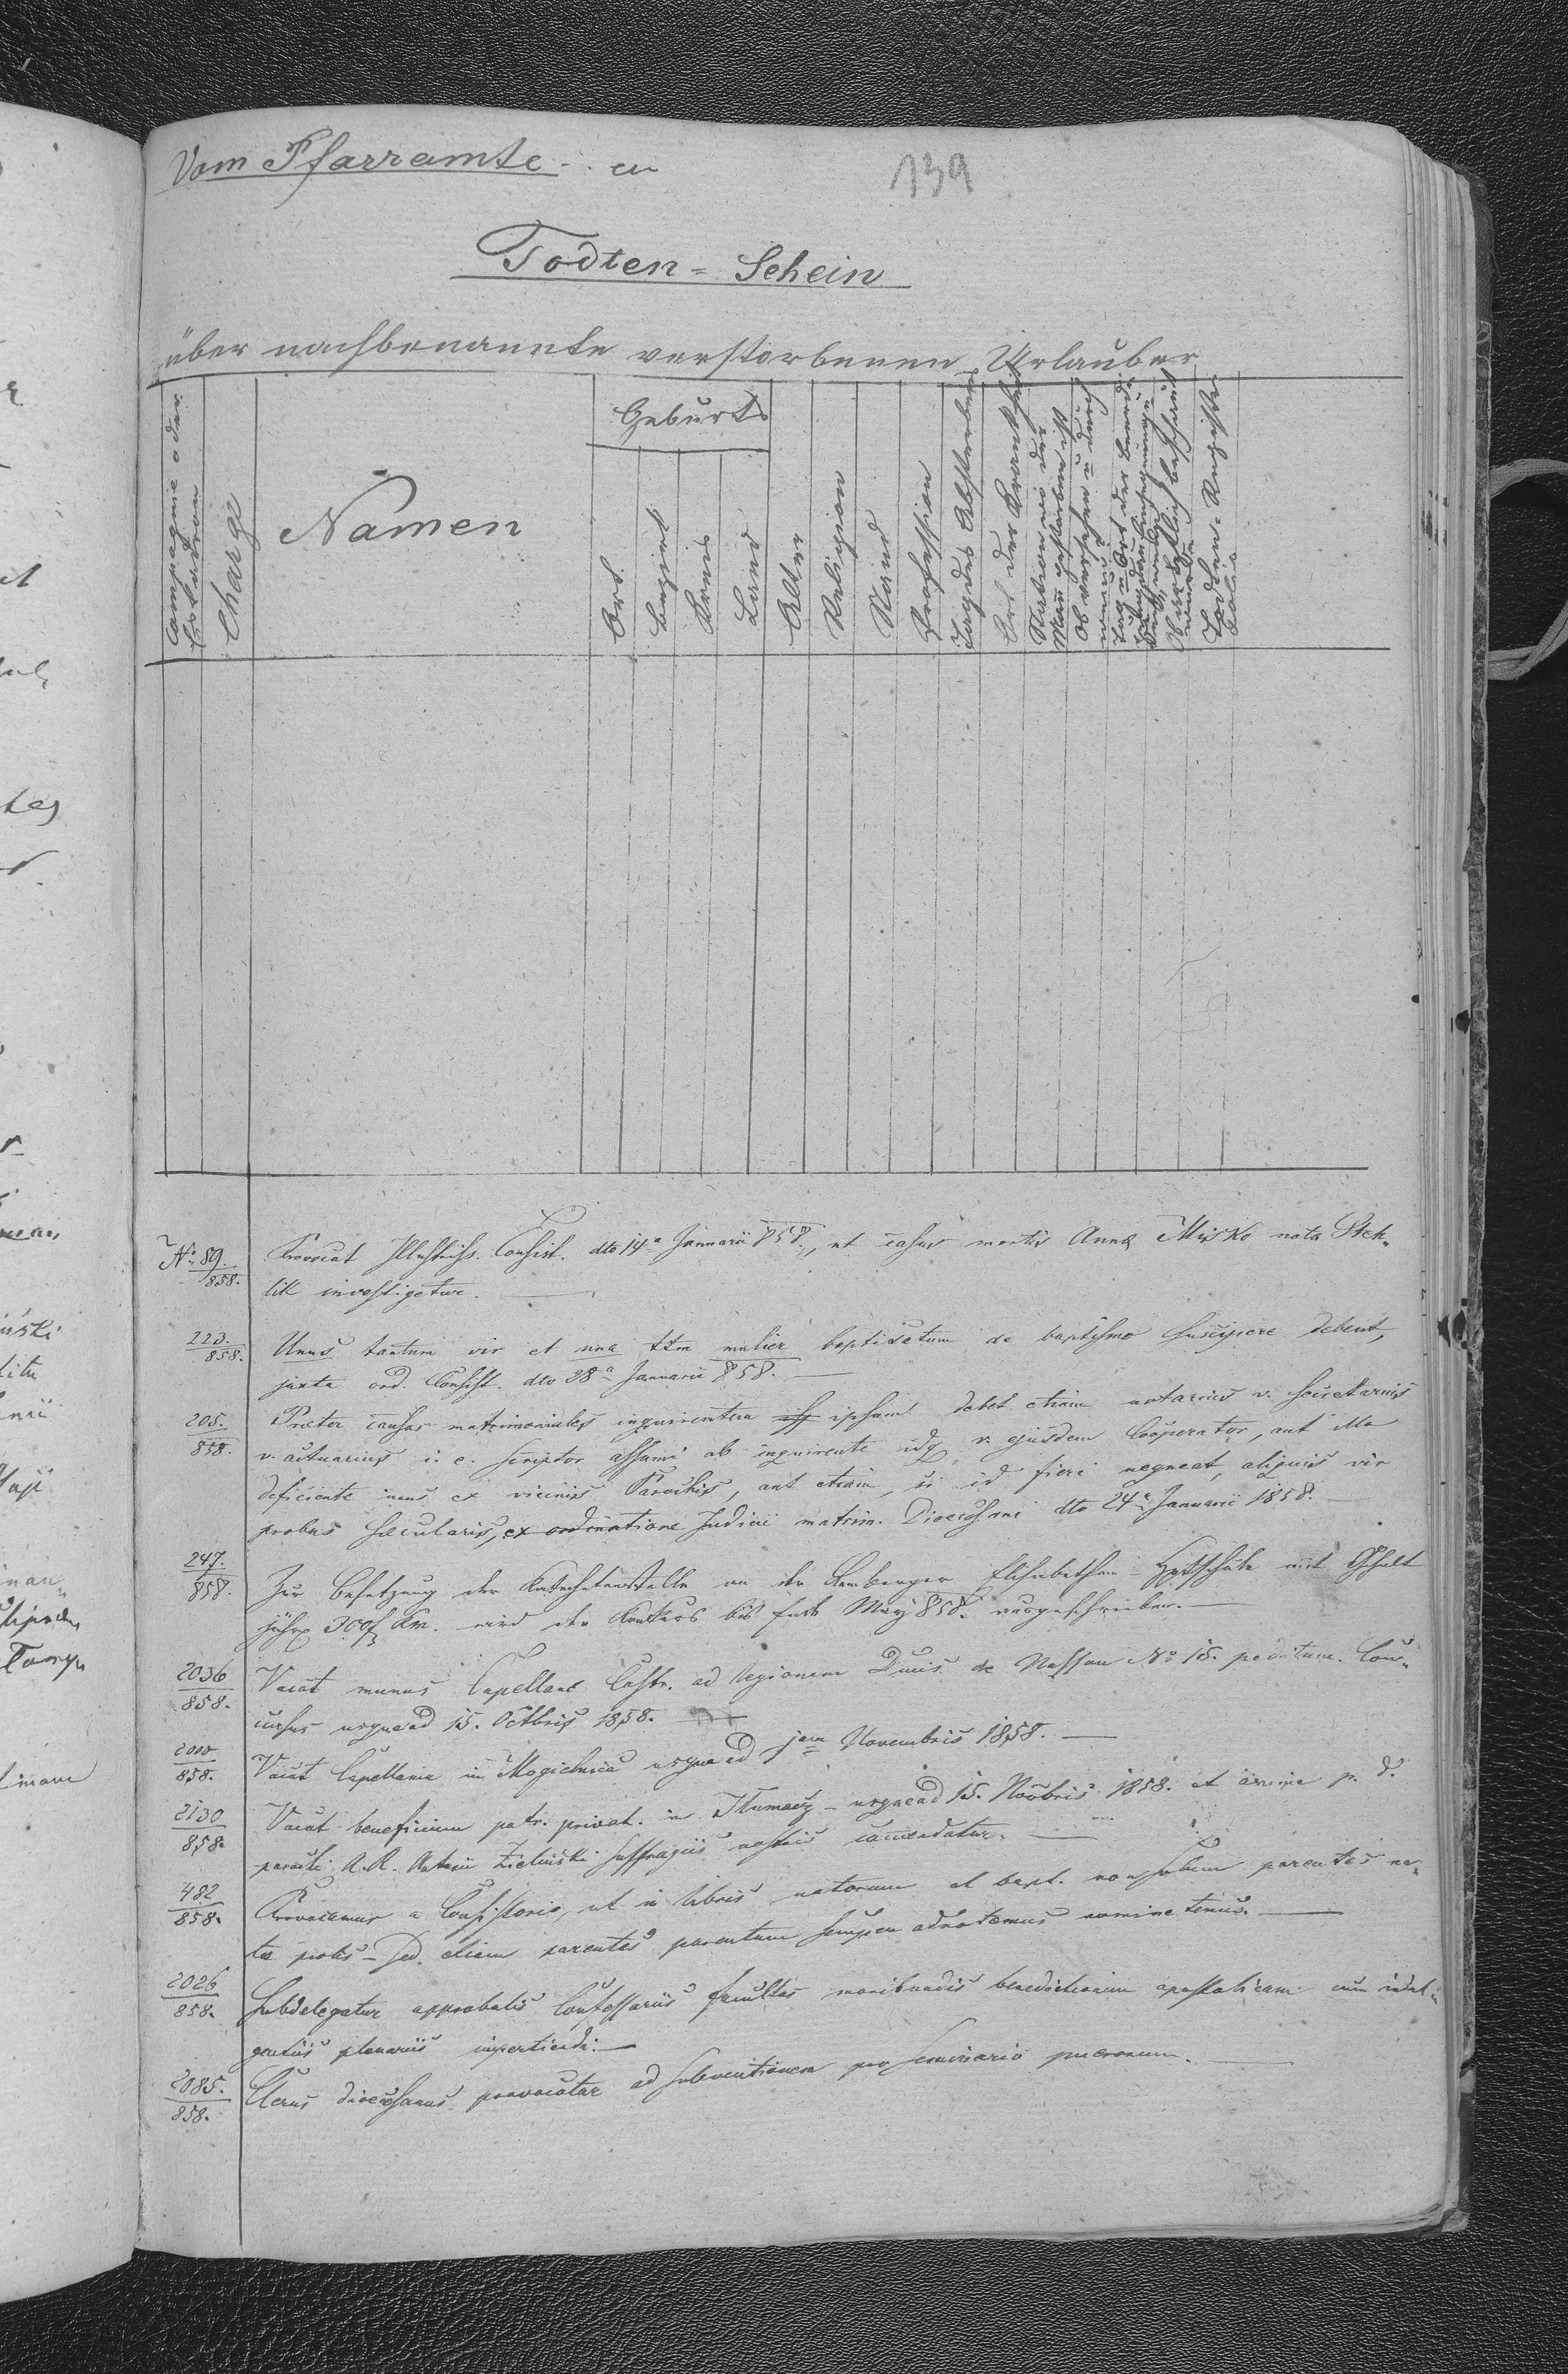 Vom Pfarramte - en
139
Todten = Schein
über nachbenannte verstorbenen Urlauber
Compagnie oder
Escadron
Charge
Namen
Geburts
Ort
Bezirk
Kreis
Land
Alter
Religion
Stand
Profession
Tag des Absterbens
Art der Krankheit
Station wo der
Mañ gestorben ist
Ob versehen u durch
wem
Tag u Ort der Beerdi
Todten-Register
Folio
No 89.
858.
Provocat Illustriss. Consist. dto 14a Januarii 858., ut casus mortis Anna Misko nata Stek„
lik investigetur.
223.
858.
Unus tantum vir et una ttm mulier baptisatum de baptismo suscipere debent,
juxta ord. Consist. dto 28a Januarii 858.
205.
858.
Praeter causas matrimoniales inquirentem ipsum debet etiam notarius v. secretarius
v. actuarius i. e. scriptor assumi ab inquirente v. ejusdem Cooperator, aut illo
deficiente unus ex vicinis Parochis, aut etiam, si id fieri nequeat, aliquis vir
probus saecularis, ex ordinatione Judicii matrim. Dioecesani dto 24a Januarii 1858.
247.
858.
Zur Besetzung der Katechetenstelle an der Lemberger Elisabethen - Hptschule mit Ghalt
jährl 300f Km. wird der Konkurs bis Ende May 858. ausgeschrieben.
2036
858.
Vacat munus Capellani Castr. ad Regionem Ducis de Nassau No 15. peditum. Con„
cursus usque ad 15. Octbris 1858.
2000
858.
Vacat Capellania in Mogielnica usque ad 1am Novembris 1858.
2130
858.
Vacat beneficium patr. privat. in Tłumacz - usque ad 15. Novbris 1858. et anima p. d.
parochi A.R. Antonii Zieliński suffragiis nostris commendatur.
482
858.
Provocamur a Consistorio, ut in libris natorum et bapt. non solum parentes na„
tae prolis - sed etiam parentes parentum semper adnotemus nomine tenus.
2026
858.
Subdelegatur approbatis Confessariis facultas moribundis benedictionem apostolicam cum indul„
gentiis plenariis impertiendi.
2085.
858.
Clerus dioecesanus provocatur ad subventionem pro seminario puerorum.